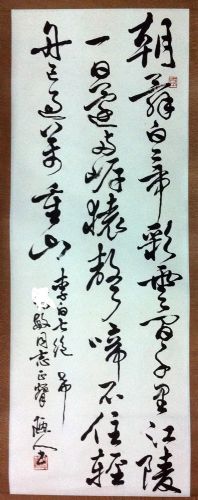 朝辭白帝彩雲间千里江陵
一日還兩岸猿聲啼不住輕
舟已過萬重山
李白七绝
敏同志正